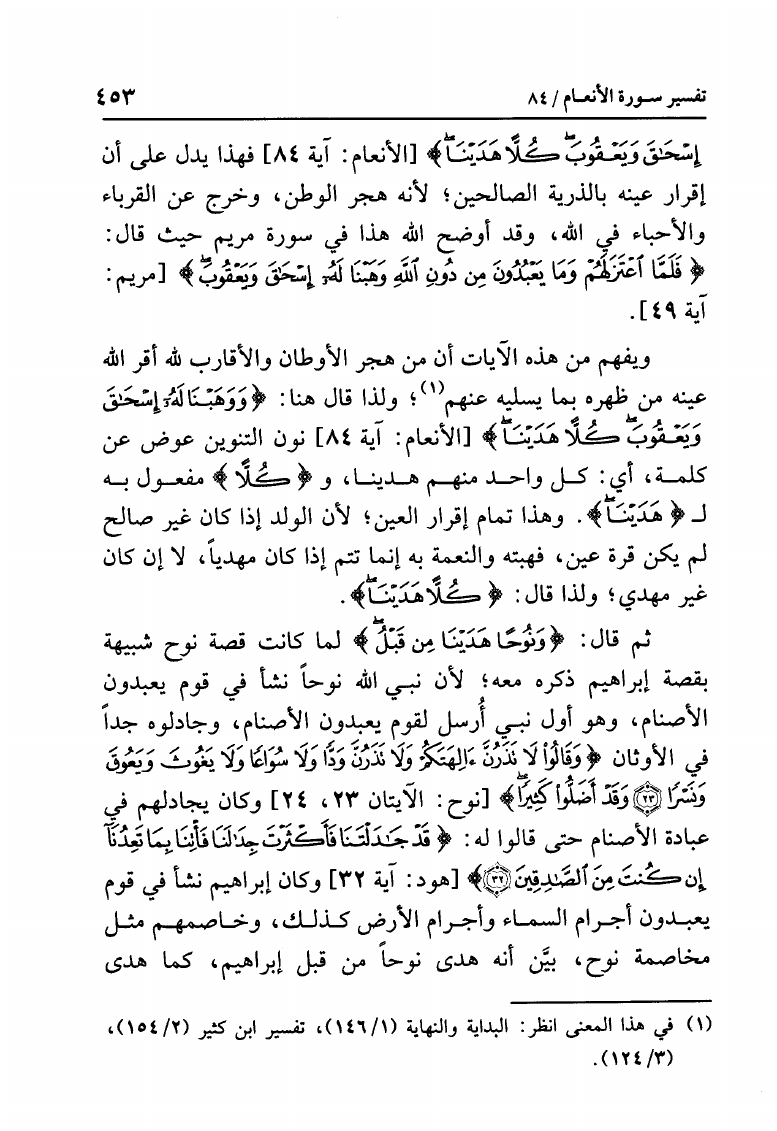 تفسير سورة الأنعام / ٨٤
٤٥٣
إِسْحَٰقَ وَيَعْقُوبَۚ كُلًّا هَدَيْنَاۚ﴾ [الأنعام: آية ٨٤] فهذا يدل على أن
إقرار عينه بالذرية الصالحين؛ لأنه هجر الوطن، وخرج عن القرباء
والأحباء في الله، وقد أوضح الله هذا في سورة مريم حيث قال:
﴿فَلَمَّا ٱعْتَزَلَهُمْ وَمَا يَعْبُدُونَ مِن دُونِ ٱللَّهِ وَهَبْنَا لَهُۥٓ إِسْحَٰقَ وَيَعْقُوبَۖ﴾ [مريم:
آية ٤٩].
ويفهم من هذه الآيات أن من هجر الأوطان والأقارب لله أقر الله
عينه من ظهره بما يسليه عنهم(١)؛ ولذا قال هنا: ﴿وَوَهَبْنَا لَهُۥٓ إِسْحَٰقَ
وَيَعْقُوبَۚ كُلًّا هَدَيْنَاۚ﴾ [الأنعام: آية ٨٤] نون التنوين عوض عن
كلمة، أي: كل واحد منهم هدينا، و﴿كُلًّا﴾ مفعول به
لـ ﴿هَدَيْنَاۚ﴾. وهذا تمام إقرار العين؛ لأن الولد إذا كان غير صالح
لم يكن قرة عين، فهبته والنعمة به إنما تتم إذا كان مهدياً، لا إن كان
غير مهدي؛ ولذا قال: ﴿كُلًّا هَدَيْنَاۚ﴾.
ثم قال: ﴿وَنُوحًا هَدَيْنَا مِن قَبْلُۖ﴾ لما كانت قصة نوح شبيهة
بقصة إبراهيم ذكره معه؛ لأن نبي الله نوحاً نشأ في قوم يعبدون
الأصنام، وهو أول نبي أُرسل لقوم يعبدون الأصنام، وجادلوه جداً
في الأوثان ﴿وَقَالُوا۟ لَا تَذَرُنَّ ءَالِهَتَكُمْ وَلَا تَذَرُنَّ وَدًّا وَلَا سُوَاعًا وَلَا يَغُوثَ وَيَعُوقَ
وَنَسْرًا ﴿٢٣﴾ وَقَدْ أَضَلُّوا۟ كَثِيرًاۖ﴾ [نوح: الآيتان ٢٣، ٢٤] وكان يجادلهم في
عبادة الأصنام حتى قالوا له: ﴿قَدْ جَٰدَلْتَنَا فَأَكْثَرْتَ جِدَٰلَنَا فَأْتِنَا بِمَا تَعِدُنَآ
إِن كُنتَ مِنَ ٱلصَّٰدِقِينَ ﴿٣٢﴾﴾ [هود: آية ٣٢] وكان إبراهيم نشأ في قوم
يعبدون أجرام السماء وأجرام الأرض كذلك، وخاصمهم مثل
مخاصمة نوح، بيَّن أنه هدى نوحاً من قبل إبراهيم، كما هدى
(١) في هذا المعنى انظر: البداية والنهاية (١٤٦/١)، تفسير ابن كثير (١٥٤/٢)،
(١٢٤/٣).